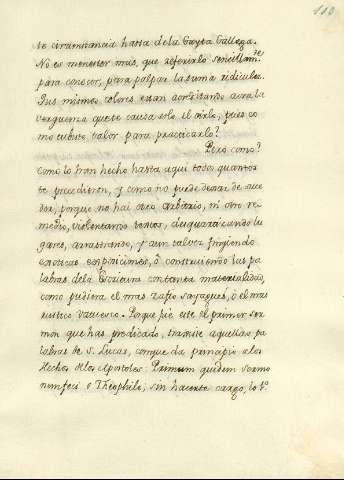 110
te circunstancia hasta de la Gayta Gallega.
No es menester mas, que referirlo sencillamte
para conocer, para palpar la suma ridiculez.
Sus mismos colores estan acreditando aora la
verguenza que te causa solo el oirlo, pues co
mo tubiste valor para practicarlo?
Pero como?
como lo han hecho hasta aqui todos quantos
te precedieron, y como no puede dexar de suce
der, porque no hai otro arbitrio, ni otro re
medio, violentando textos, desquartizando lu
gares, arrastrando, y aun talvez fingiendo
exoticas exposiciones, ò construiendo las pa
labras de la Escritura con tanta materialidad,
como pudiera el mas zafio Sayagues, ò el mas
rustico Porque fue este el primer ser
mon que has predicado, traxiste aquellas pa
labras de S. Lucas, con que da principio a los
Hechos de los Apostoles. Primum quidem sermo
nem feci o Theophile; sin hacerte cargo, lo 1o